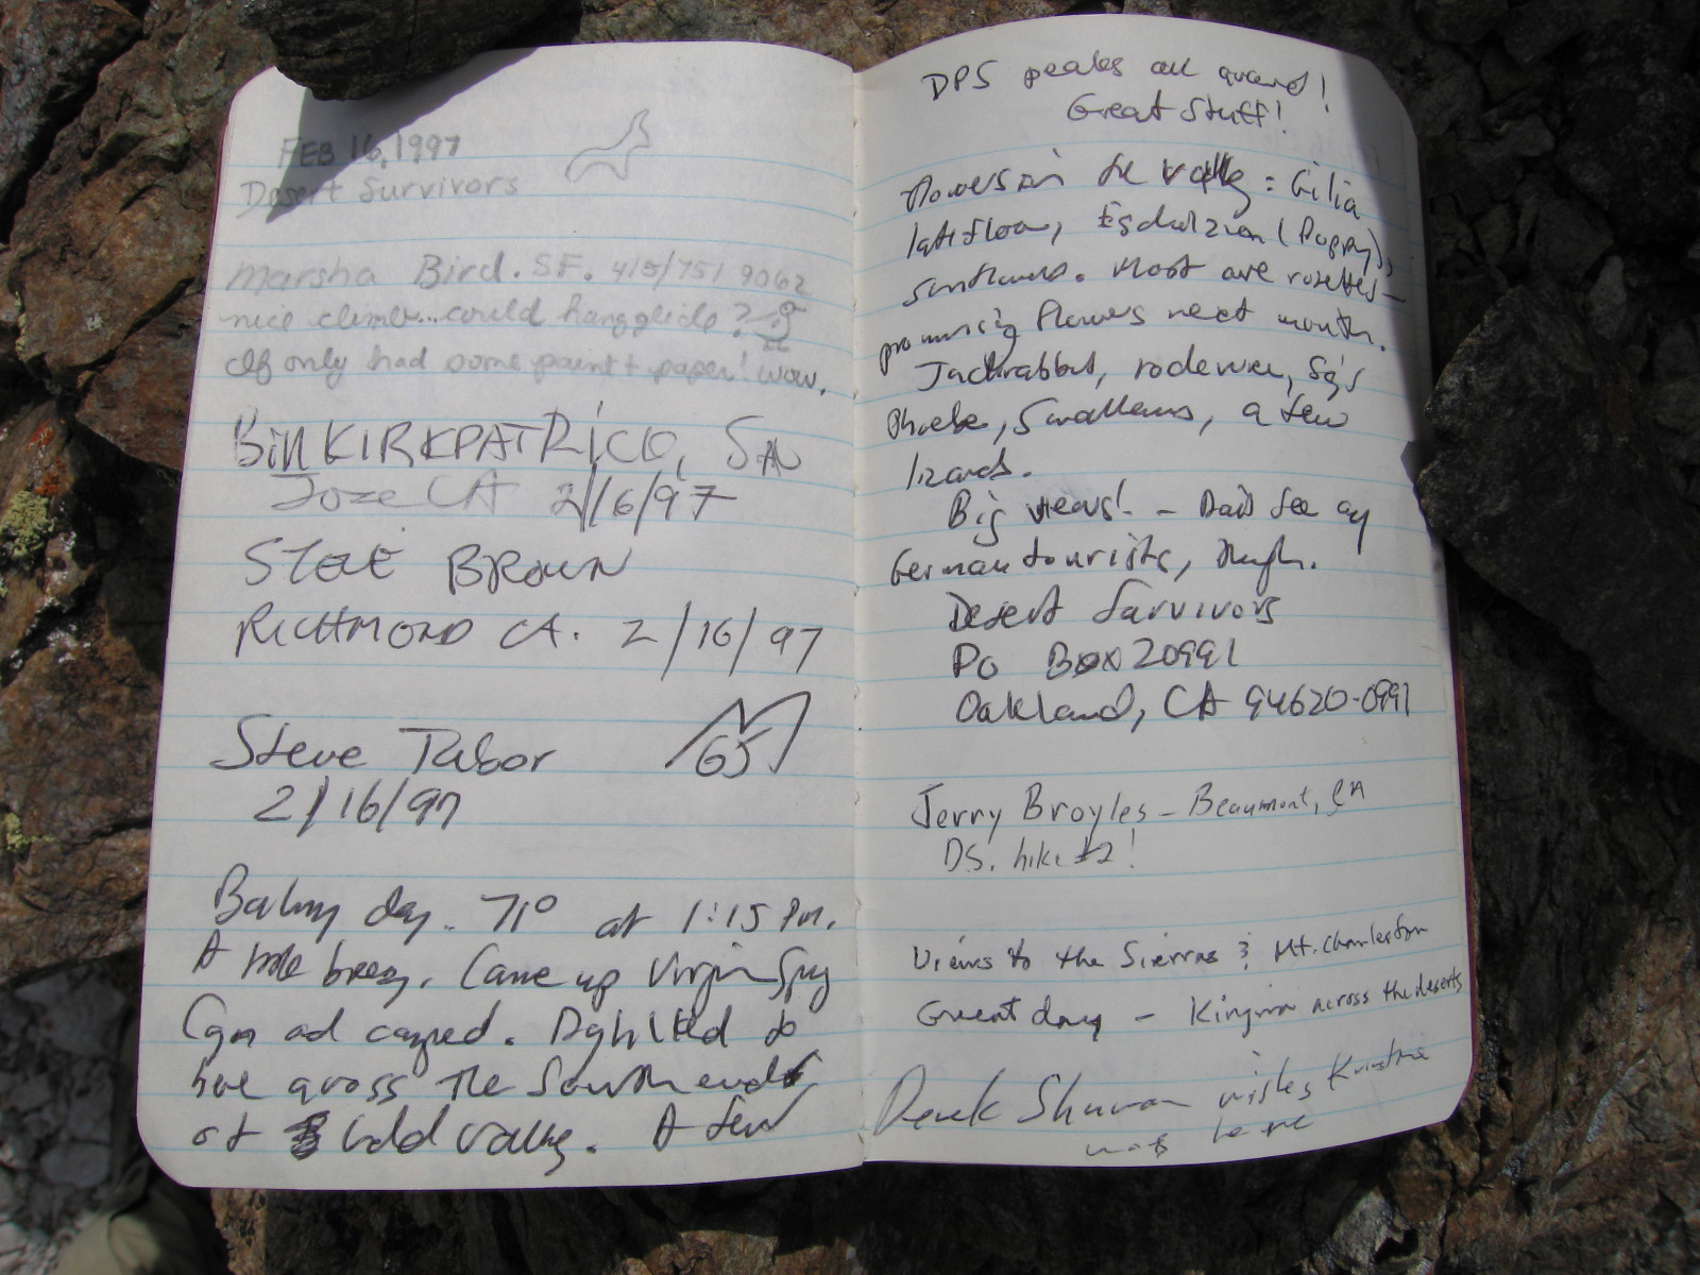 FEB 16, 1997
Desert Survivors
Marsha Bird. S.F. 415/751 9062
nice climb... could hang glide?
If only had some paint + paper! wow.
Bill KIRKPATRICK, SAN
Jose CA 2/16/97
STEVE BROWN
RICHMOND CA. 2/16/97
Steve Tabor
65
2/16/97
Balmy day. 71° at 1:15 PM.
A little breeze. Came up Virgin Spg
Cyn and camped. Dayhiked to
here across the South end
of Gold Valley. A few
DPS peaks all around!
Great Stuff!
Flowers in the valley: Gilia
latiflora, (Poppy),
sunflowers. Most are rosettes –
promising flowers next month.
Jackrabbit, Sg's
Phoebe, Swallows, a few
lizards.
Big views! – Didn't see any
German tourists, though.
Desert Survivors
PO Box 20991
Oakland, CA 94620-0991
Jerry Broyles – Beaumont, CA
D.S. hike #2!
Views to the Sierras & Mt. Charleston
Great day – across the deserts
Derek wishes Kristine
was here